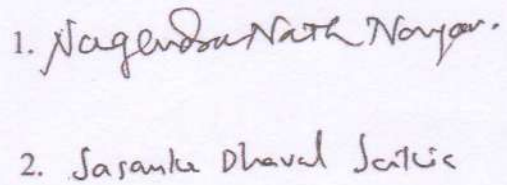 1. Nagendra Nath
2. Sasanka Dhaval Saikia